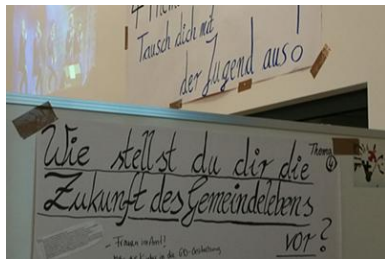 Tausch dich mit
der Jugend aus!
Thema
Wie stellst du dir die
Zukunft des Gemeindelebens
vor?
- Frauen im Amt!